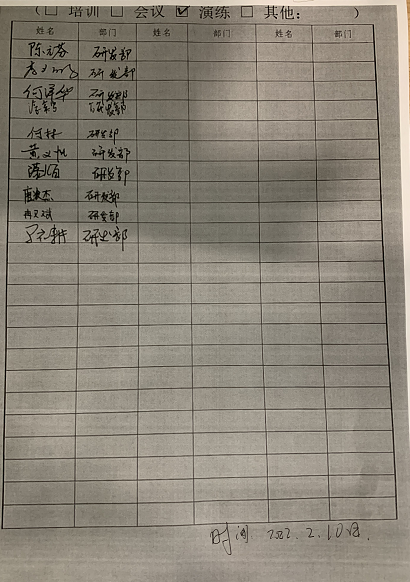 ( □ 培训 □ 会议 ☑ 演练 □ 其他: )
姓名 部门 姓名 部门 姓名 部门
陈元芬 研发部
研发部
何泽华 研发部
研发部
付林 研发部
黄文帆 研发部
研发部
唐俊杰 研发部
冉天斌 研发部
研发部
时间 2022.2.10日.